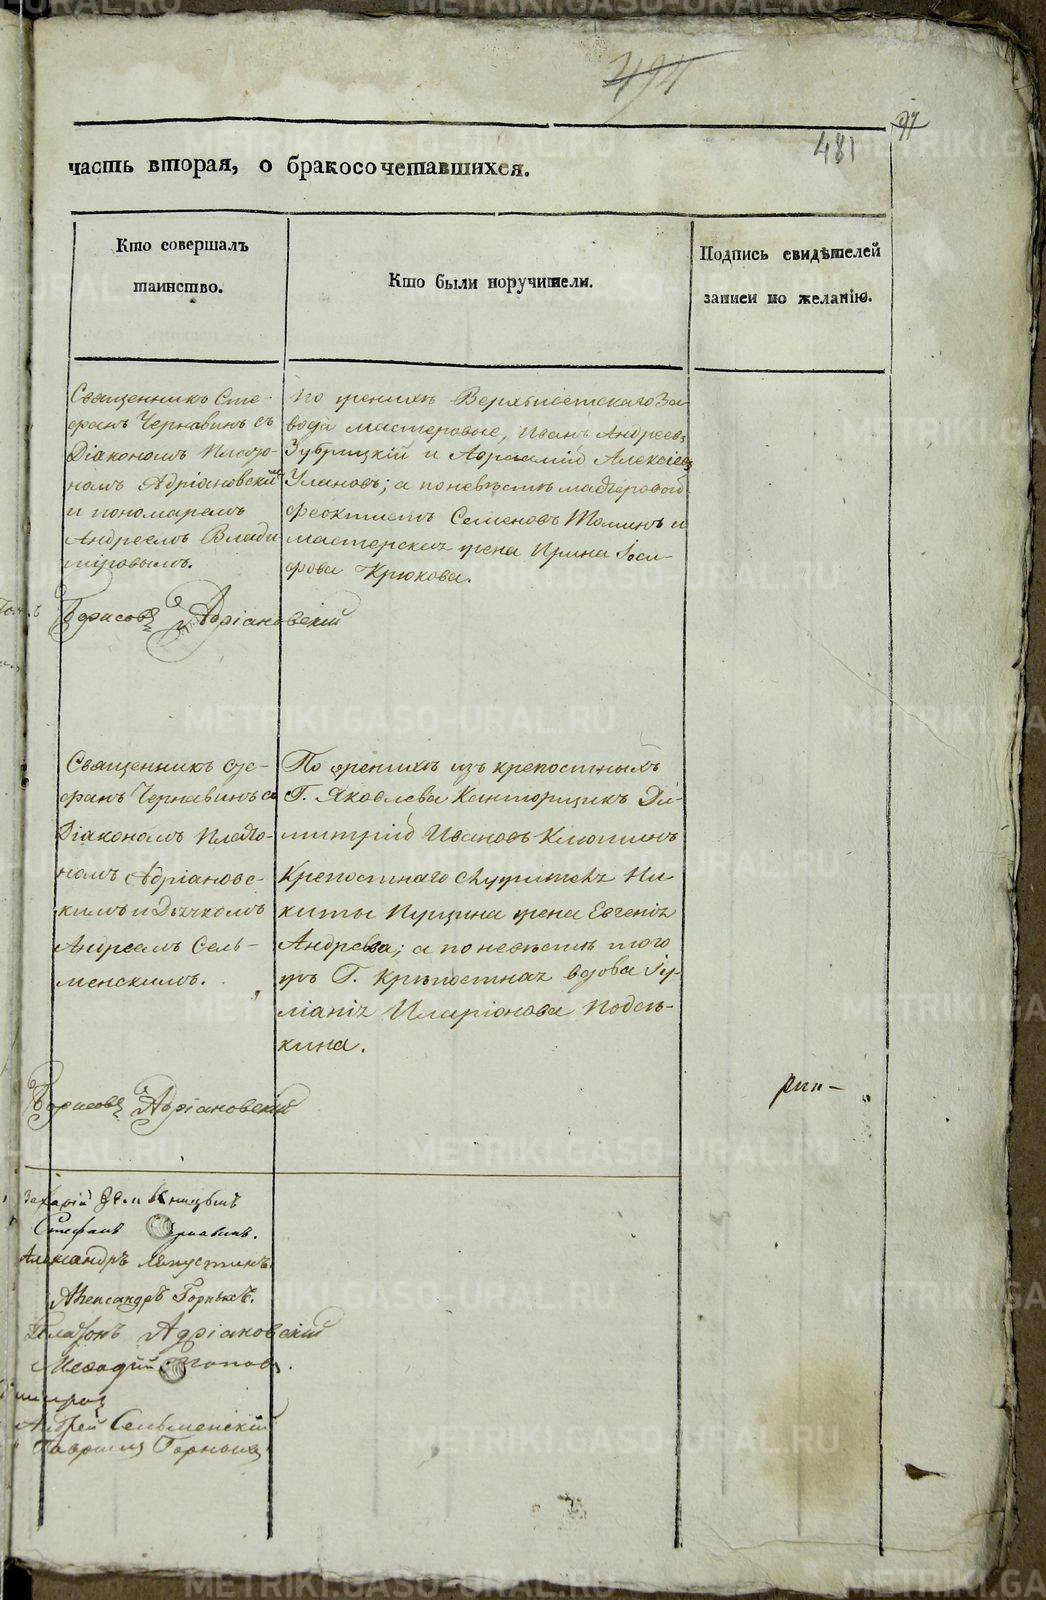 494
97
481
часть вторая, о бракосочетавшихся.
Кто совершалъ
таинство.
Кто были поручители.
Подпись свидѣтелей
записи по желанію.
Священникъ Сте-
фанъ Чернавинъ съ
Діакономъ Плато-
номъ Адріановскій
и пономаремъ
Андреемъ Влади
міровымъ.
По женихѣ Верхъисетскаго За
вода мастеровые, Иванъ Андреевъ
Зубрицкій и Авраамій Алексіевъ
Улановъ; а по невѣстѣ мастеровой
Феоктистъ Семеновъ Томинъ и
мастерская жена Ирина Іоси-
фова Крюкова.
Борисовъ Адріановскій
Священникъ Сте-
фанъ Чернавинъ съ
Діакономъ Плато-
номъ Адріановс-
кимъ и Дьячкомъ
Андреемъ Сель-
менскимъ.
По женихѣ изъ крепостныхъ
Г. Яковлева Канторщикъ Ди-
митрій Ивановъ Клюпинъ
Крепостнаго служителя Ни-
киты Пущина жена Евгенія
Андреева; а по невѣстѣ того
жъ Г. Крѣпостная вдова Іу-
ліанія Иларіонова Подсѣ-
кина.
Борисовъ Адріановскій
Захарій
Стефанъ Чернавинъ.
Александръ Капустинъ.
Александръ Горныхъ.
Платонъ Адріановскій
Меѳодій Поповъ.
Андрей Сельменскій
Гавріилъ Горныхъ
METRIKI.GASO-URAL.RU